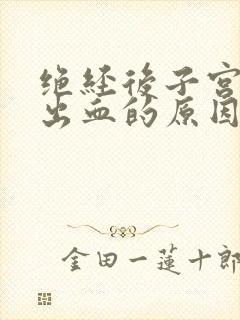 绝经後子宫
出血的原因
金田一蓮十郎